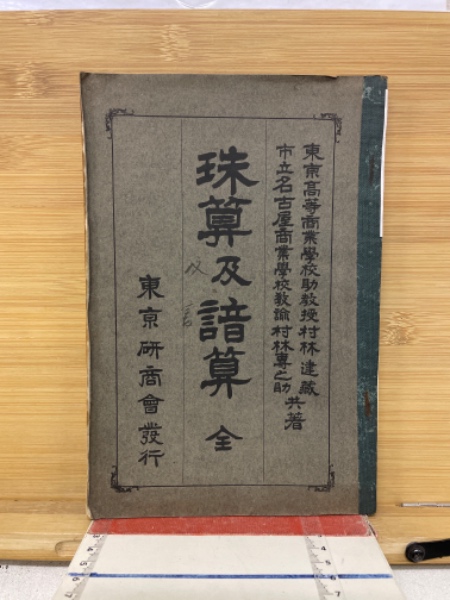 東京高等商業學校助教授村林達藏
市立名古屋商業學校教諭村林專之助
共著
珠算及諳算 全
東京 研商會發行